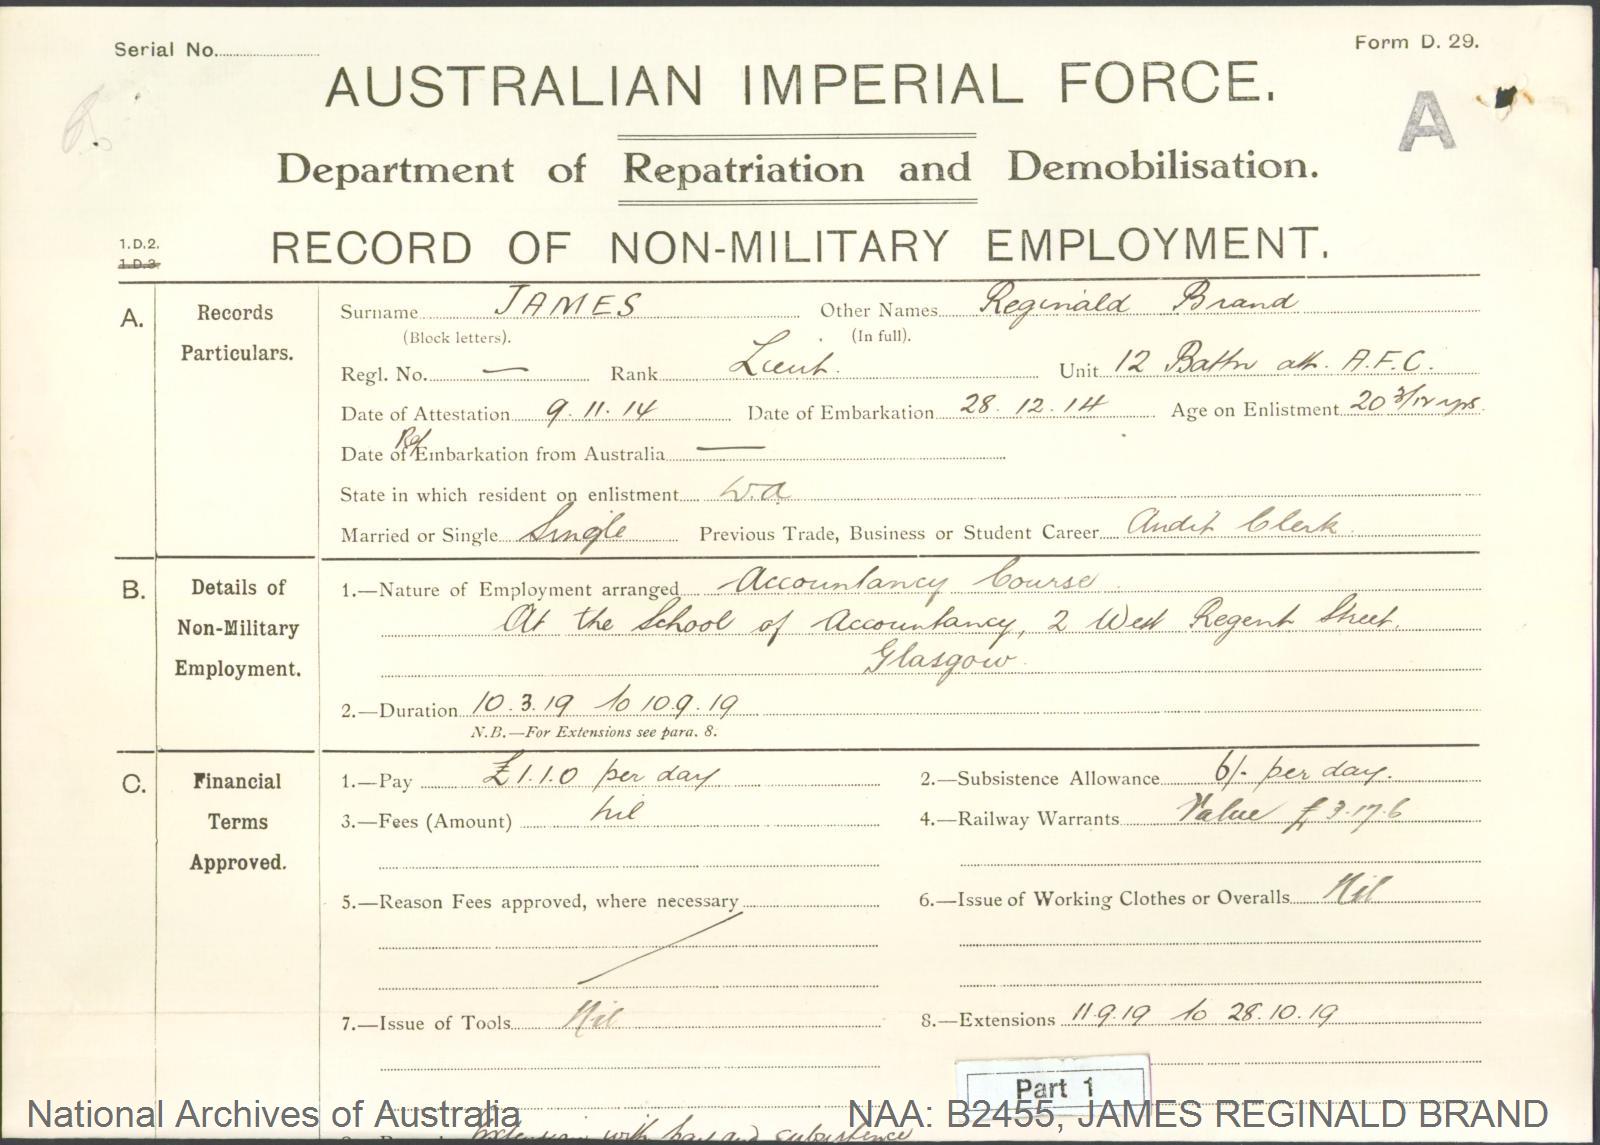 Serial No.
Form D. 29.
AUSTRALIAN IMPERIAL FORCE.
A
Department of Repatriation and Demobilisation.
1.D.2.
1.D.3.
RECORD OF NON-MILITARY EMPLOYMENT.
A. Records Particulars.
Surname JAMES Other Names Reginald Brand
(Block letters). (In full).
Regl. No. — Rank Lieut. Unit 12 Battn att. A.F.C.
Date of Attestation 9.11.14 Date of Embarkation 28.12.14 Age on Enlistment 20 3/12 yrs.
Date of Embarkation from Australia —
State in which resident on enlistment W.A
Married or Single Single Previous Trade, Business or Student Career Audit Clerk
B. Details of Non-Military Employment.
1.—Nature of Employment arranged Accountancy Course
At the School of Accountancy, 2 West Regent Street,
Glasgow
2.—Duration 10.3.19 to 10.9.19
N.B.—For Extensions see para. 8.
C. Financial Terms Approved.
1.—Pay £1.1.0 per day 2.—Subsistence Allowance 6/- per day.
3.—Fees (Amount) Nil 4.—Railway Warrants Value £3.17.6
5.—Reason Fees approved, where necessary 6.—Issue of Working Clothes or Overalls Nil
7.—Issue of Tools Nil 8.—Extensions 11.9.19 to 28.10.19
Part 1
National Archives of Australia NAA: B2455, JAMES REGINALD BRAND
Extension with pay and subsistence